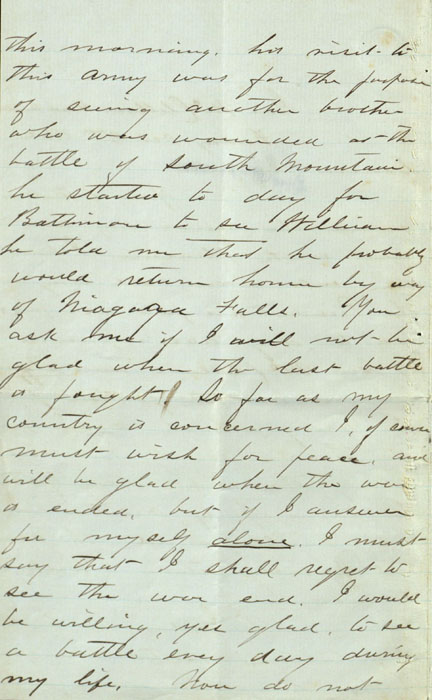 this morning. his visit to
this army was for the purpose
of seeing another brother
who was wounded at the
battle of South Mountain.
he started to day for
Baltimore to see William
he told me that he probably
would return home by way
of Niagara Falls. You
ask me if I will not be
glad when the last battle
is fought. So far as my
country is concerned I, of course
must wish for peace, and
will be glad when the war
is ended, but if I answer
for myself alone, I must
say that I shall regret to
see the war end. I would
be willing, yes glad, to see
a battle every day during
my life. Now do not